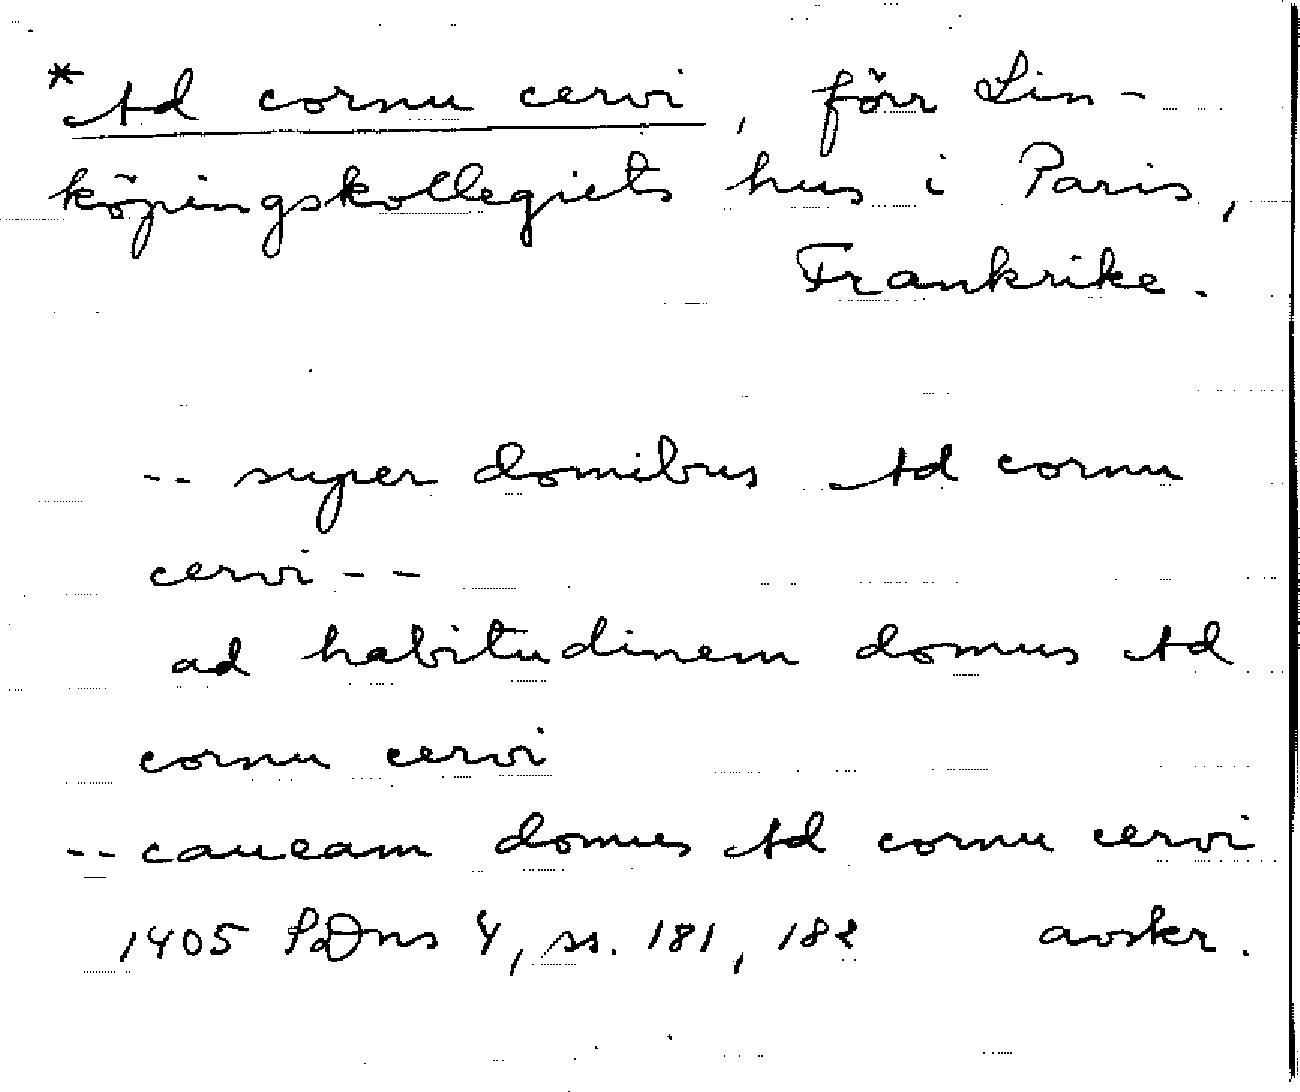 *Ad cornu cervi, förr Lin-
köpingskollegiets hus i Paris,
Frankrike.
-- super domibus Ad cornu
cervi --
ad habitudinem domus Ad
cornu cervi
-- caucam domus Ad cornu cervi
1405 PaDns 4, ss. 181, 182 avskr.